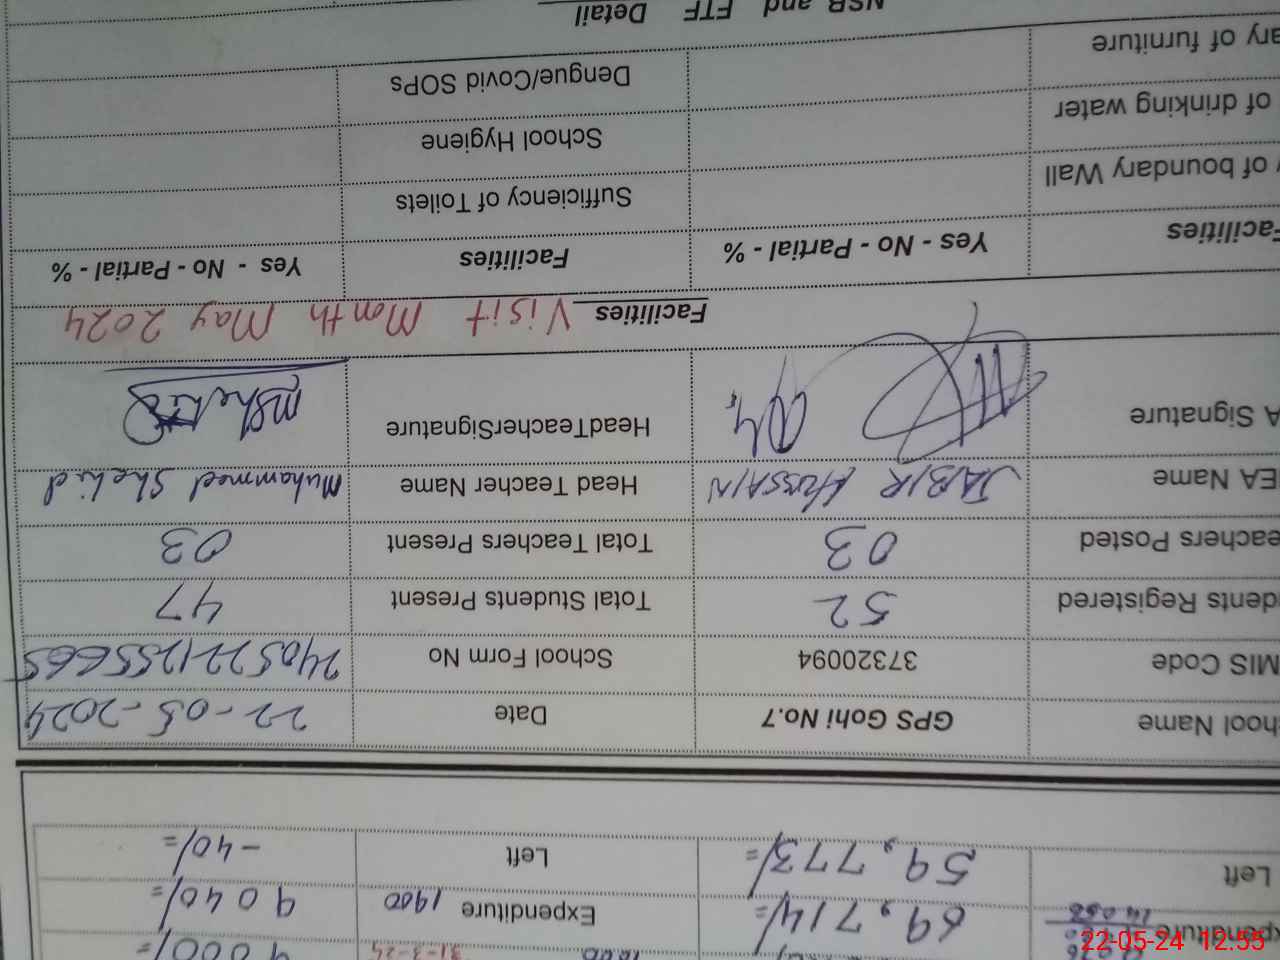 31-3-24 9000/=
xpenditure 69,714/= Expenditure 1900 9040/=
Left 59,773/= Left -40/=
hool Name GPS Gohi No.7 Date 22-05-2024
MIS Code 37320094 School Form No 2405221255665
dents Registered 52 Total Students Present 47
eachers Posted 03 Total Teachers Present 03
EA Name JABIR HUSSAIN Head Teacher Name Muhammed Shahid
A Signature HeadTeacherSignature
Facilities Visit Month May 2024
Facilities Yes - No - Partial - % Facilities Yes - No - Partial - %
of boundary Wall Sufficiency of Toilets
of drinking water School Hygiene
ary of furniture Dengue/Covid SOPs
NSB and FTF Detail
22-05-24 12:55